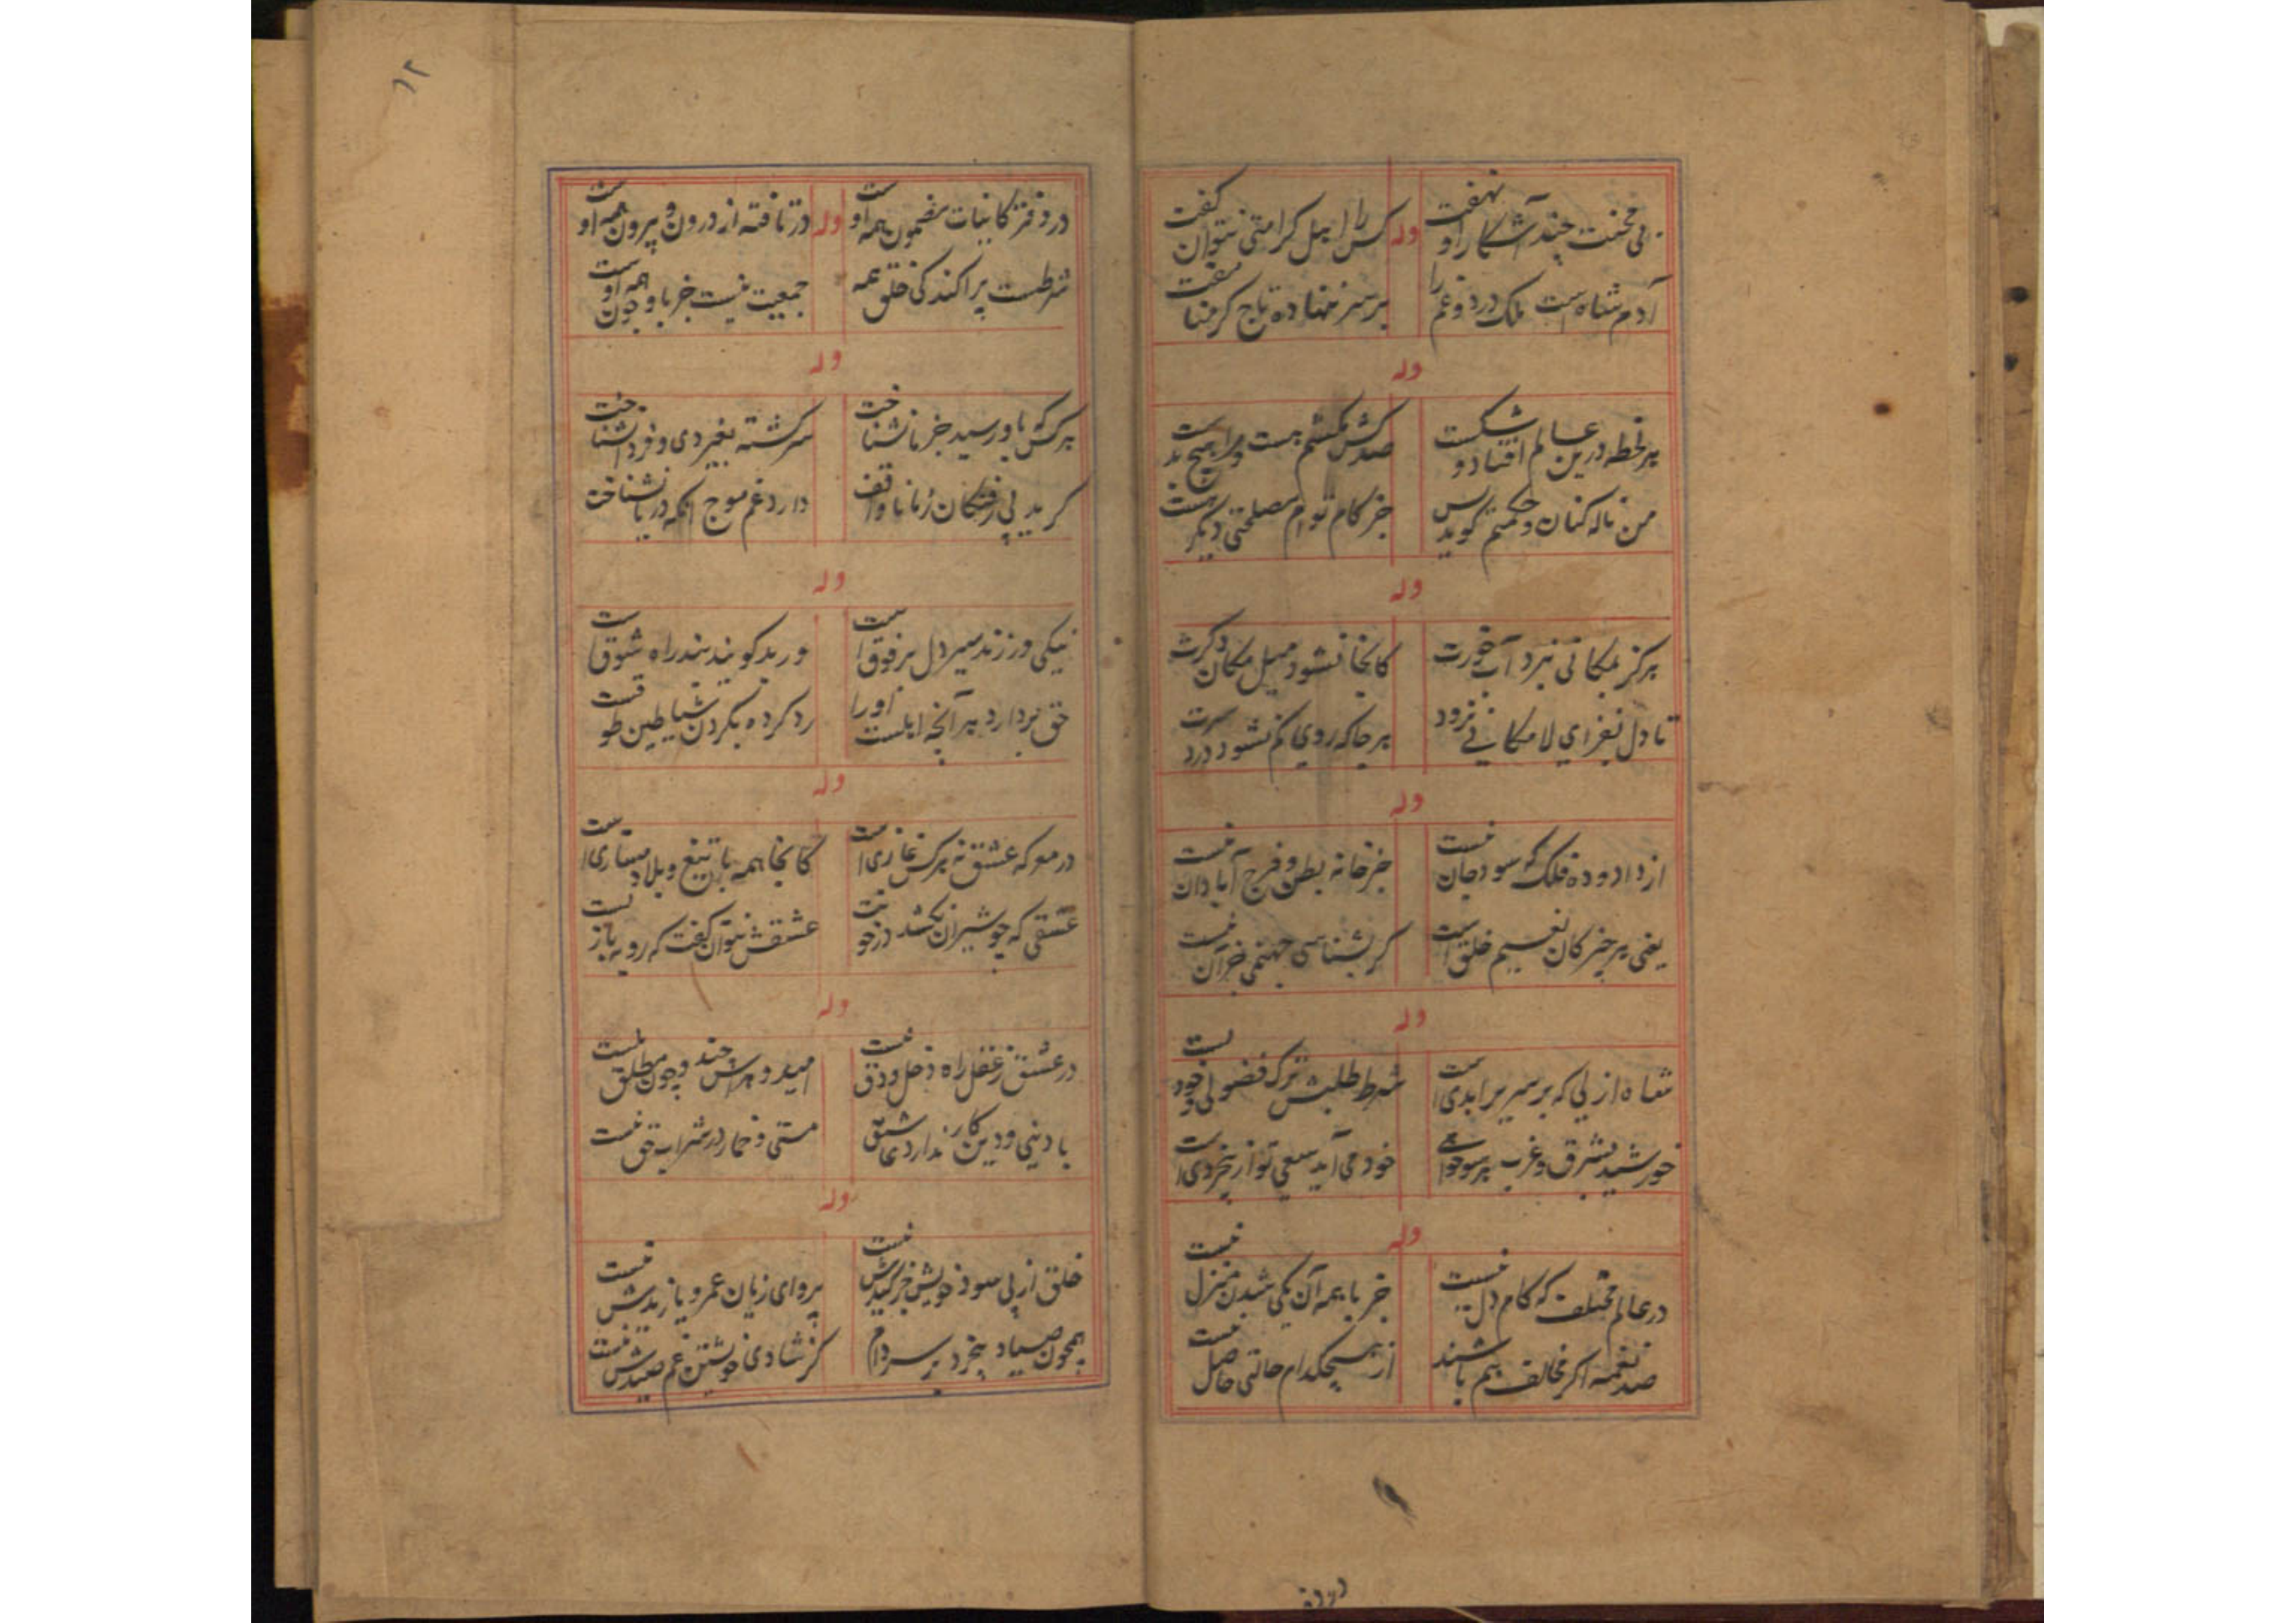 بی محنت چند آشکارا و نهفت
کس را اهل کرامتی نتوان گفت
آدم شاه است ملک درد و غم را
بر سر ننهاده تاج کرمنا مفت
وله
وله
هر لحظه درین عالم افتاد و شکست
صد کش مکشم هست و مرا هیچ بدست
من ناله کنان و حکمتم گوید بس
جز کام توام مصلحتی دیگر هست
وله
هرگز بمکانی نبرد آبخورت
کانجا نشود میل مکان دگرت
تا دل بفزای لامکانی نرود
هر جا که روی کم نشود درد سرت
وله
از داد و ده فلک که سود جان نیست
جز خانه بطن و فرج آبادان نیست
یعنی هر چیز کان نعیم خلق است
گر بشناسی جهنمی جز آن نیست
وله
شاه ازلی که بر سریر ابدی است
شرط طلبش ترک فضولی و خودیست
خورشید بشرق و غرب هر سو
خود می آید سعی تو از بیخردی است
وله
در عالم مختلف که کام دل نیست
جز با همه آن یکی شدن منزل نیست
صد نغمه اگر مخالف هم باشند
از هیچکدام حالتی حاصل نیست
در دفتر کاینات مضمون همه اوست
در تافته از درون و بیرون همه اوست
شرطست پراکندگی خلق همه
جمعیت نیست جز باو چون همه اوست
وله
وله
هر کس که باو رسید جز ما نشناخت
سرگشته بغیر دی و فردا نشناخت
گرید پی رفتگان زما ناواقف
دارد غم موج آنکه دریا نشناخت
وله
نیکی ورزند سیر دل بر فوق است
ور بد گویند بند راه شوق است
حق بردارد هر آنچه اهلست او را
رد کرده بگردن شیاطین طوقست
وله
در معرکه عشق نه هر کس غازی است
کانجا همه با تیغ و بلا دمسازی است
عشقی که چو شیران نکشد در خونت
عشقش نتوان گفت که روبه بازیست
وله
در عشق ز عقل راه دخل و دق نیست
امید و هراس چند و چون مطلق نیست
با دینی و دین کار ندارد عاشق
مستی و خمار در شراب حق نیست
وله
خلق از پی سود خویش جز کیدش نیست
پروای زیان عمرو یا زیدش نیست
همچون صیاد بیخرد بر سر دام
کز شادی خویشتن غم صیدش نیست